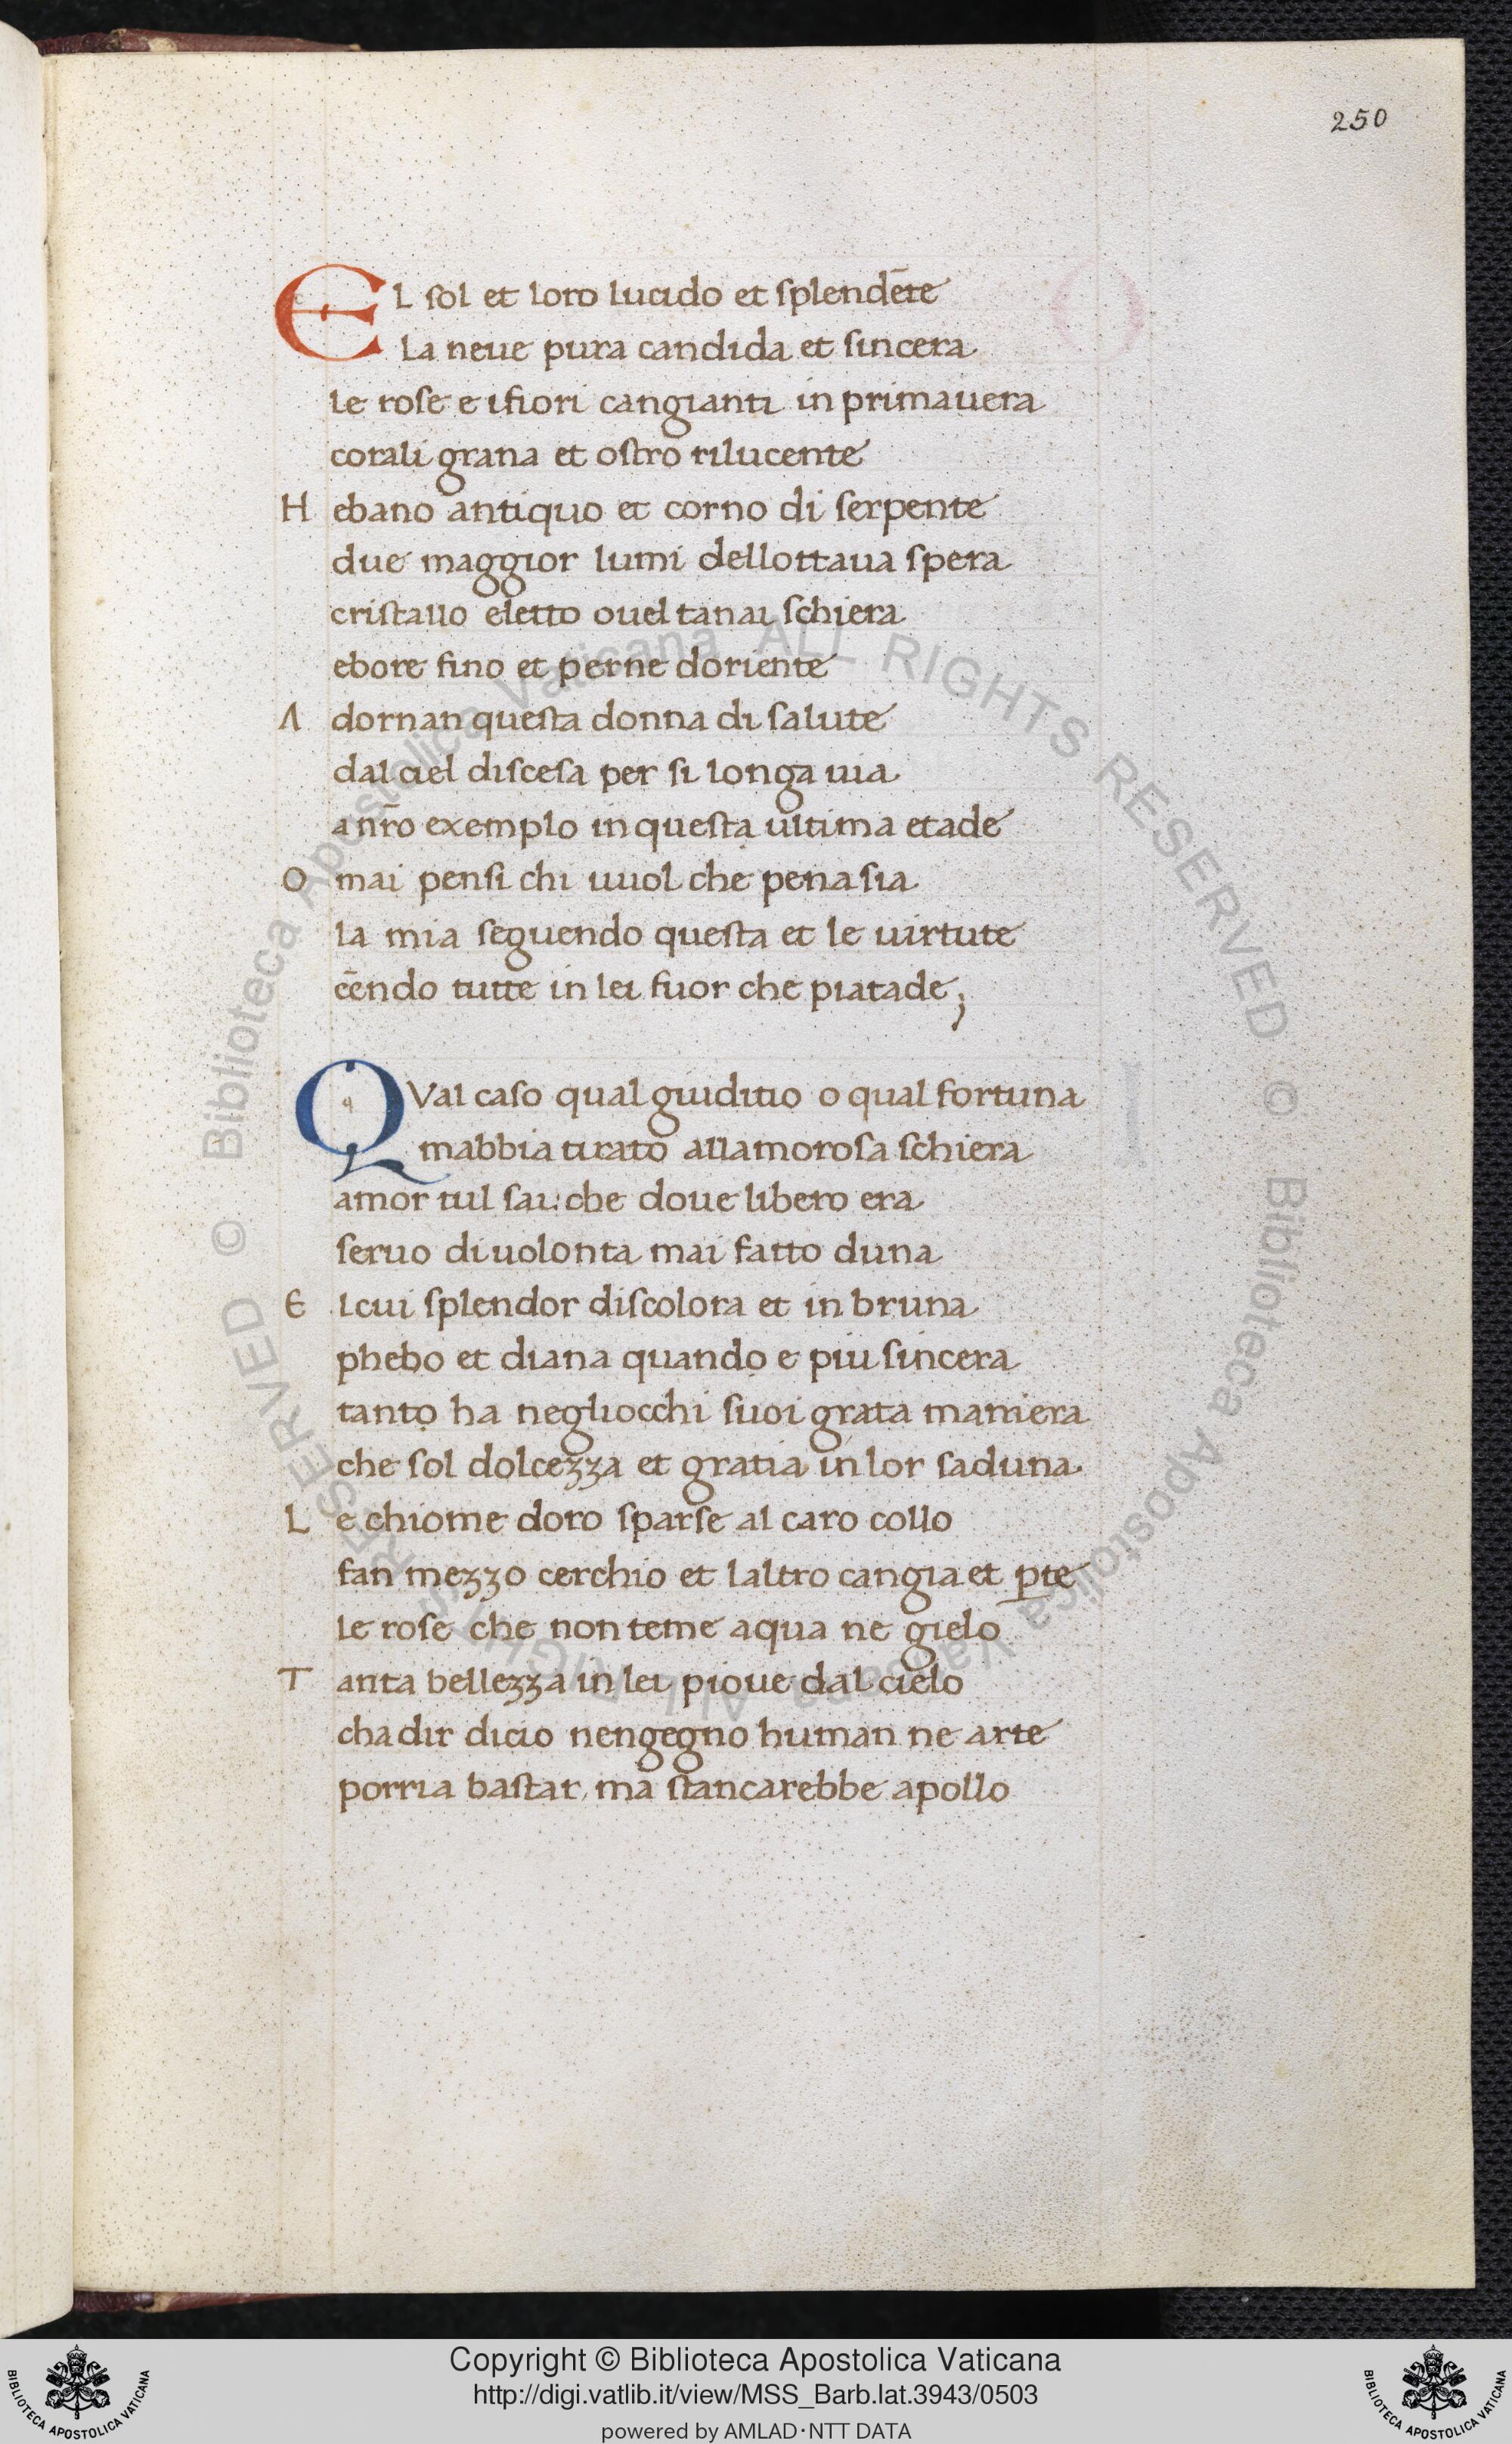 250
EL sol et loro lucido et splendēte
La neue pura candida et sincera
le rose e ifiori cangianti in primauera
corali grana et ostro rilucente
H ebano antiquo et corno di serpente
due maggior lumi dellottaua spera
cristallo eletto ouel tanai schiera
ebore fino et perne doriente
A dornan questa donna di salute
dal ciel discesa per si longa uia
a nr̄o exemplo in questa ultima etade
O mai pensi chi uuol che pena sia
la mia seguendo questa et le uirtute
cēndo tutte in lei fuor che piatade;
QVal caso qual giuditio o qual fortuna
mabbia tirato allamorosa schiera
amor tul sai: che doue libero era
seruo di uolonta mai fatto duna
E lcui splendor discolora et in bruna
phebo et diana quando e piu sincera
tanto ha negliocchi suoi grata maniera
che sol dolcezza et gratia in lor saduna
L e chiome doro sparse al caro collo
fan mezzo cerchio et laltro cangia et ꝑte
le rose che non teme aqua ne gielo
T anta bellezza in lei pioue dal cielo
cha dir dicio nengegno human ne arte
porria bastar, ma stancarebbe apollo
© Biblioteca Apostolica Vaticana ALL RIGHTS RESERVED © Biblioteca Apostolica Vaticana ALL RIGHTS RESERVED
Copyright © Biblioteca Apostolica Vaticana
http://digi.vatlib.it/view/MSS_Barb.lat.3943/0503
powered by AMLAD·NTT DATA
BIBLIOTECA APOSTOLICA VATICANA
BIBLIOTECA APOSTOLICA VATICANA